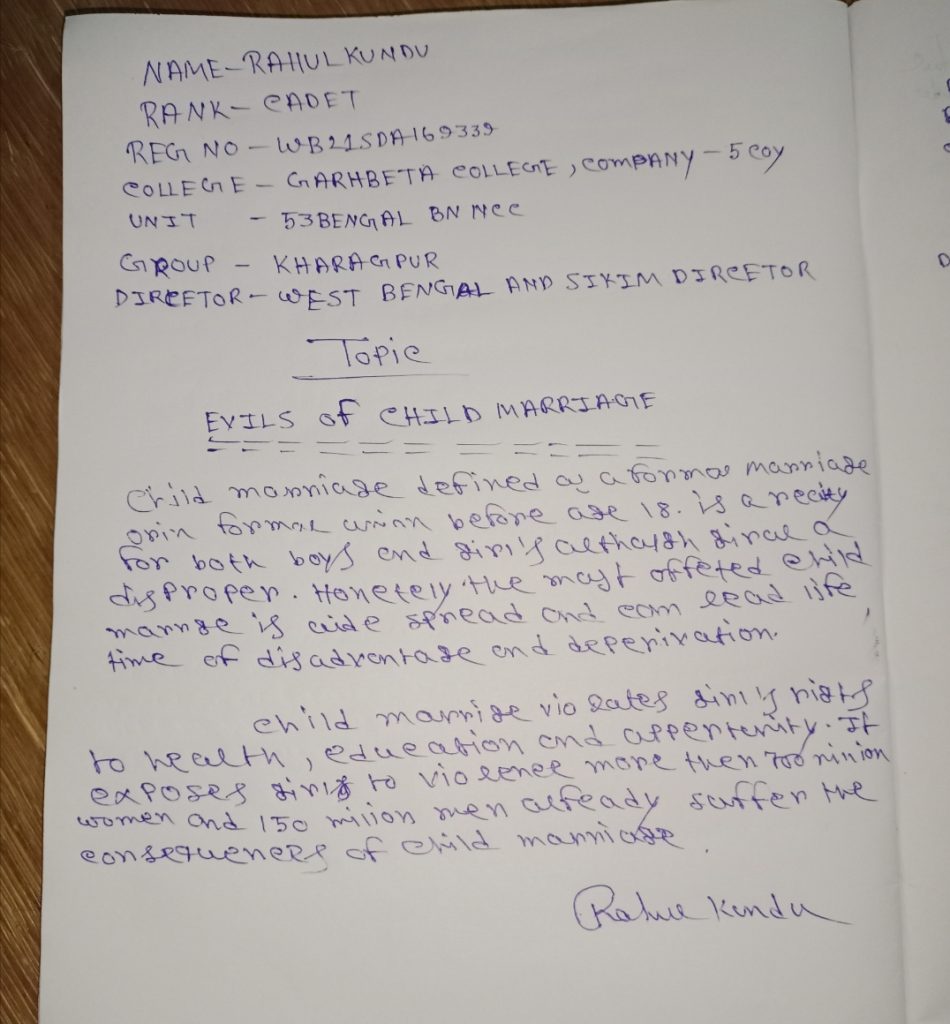 NAME-RAHUL KUNDU
RANK- CADET
REG NO - WB21SDA169339
COLLEGE - GARHBETA COLLEGE, COMPANY - 5 COY
UNIT - 53 BENGAL BN NCC
GROUP - KHARAGPUR
DIRCETOR - WEST BENGAL AND SIKIM DIRCETOR
Topic
EVILS of CHILD MARRIAGE
Child marriage defined as a formal marriage
orin formal before age 18. is a
for both boys and girl's although
disproper. Honetely the most offeted child
marrage is wide spread and can lead life
time of disadvantage and deperivation.
child marrige violates girl's rights
to health, education and appertunity. It
exposes girls to violence more then 700 minion
women and 150 miiion men already suffer the
consequences of child marriage.
Rahul Kundu